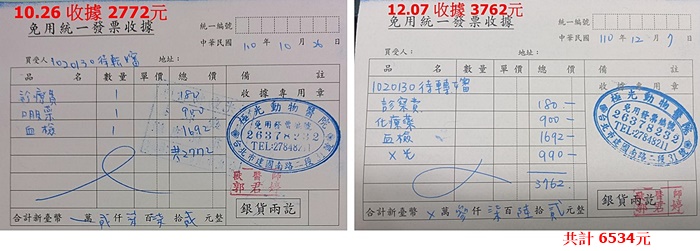 10.26 收據 2772元
免用統一發票收據
統一編號
中華民國 110年10月26日
買受人：1020130待轉擋 地址：
品名 數量 單價 總價 備註
收據專用章
診療費 1 180
口服藥 1 900
血檢 1 1692
共2772
極光動物醫院
免用發票統編
26378232
TEL:27848211
台北市建國南路二段
獸醫師
郭君
銀貨兩訖
合計新臺幣 萬貳仟柒百柒拾貳元整
12.07 收據 3762元
免用統一發票收據
統一編號
中華民國 110年12月7日
買受人： 地址：
品名 數量 單價 總價 備註
收據專用章
1020130待轉擋
診察費 180-
化療藥 900-
血檢 1692-
X光 990-
3762
極光動物醫院
免用發票統編
26378232
TEL:27848211
台北市建國南路二段
獸醫師
郭君婷
銀貨兩訖
合計新臺幣 X萬參仟柒百陸拾貳元整
共計 6534元